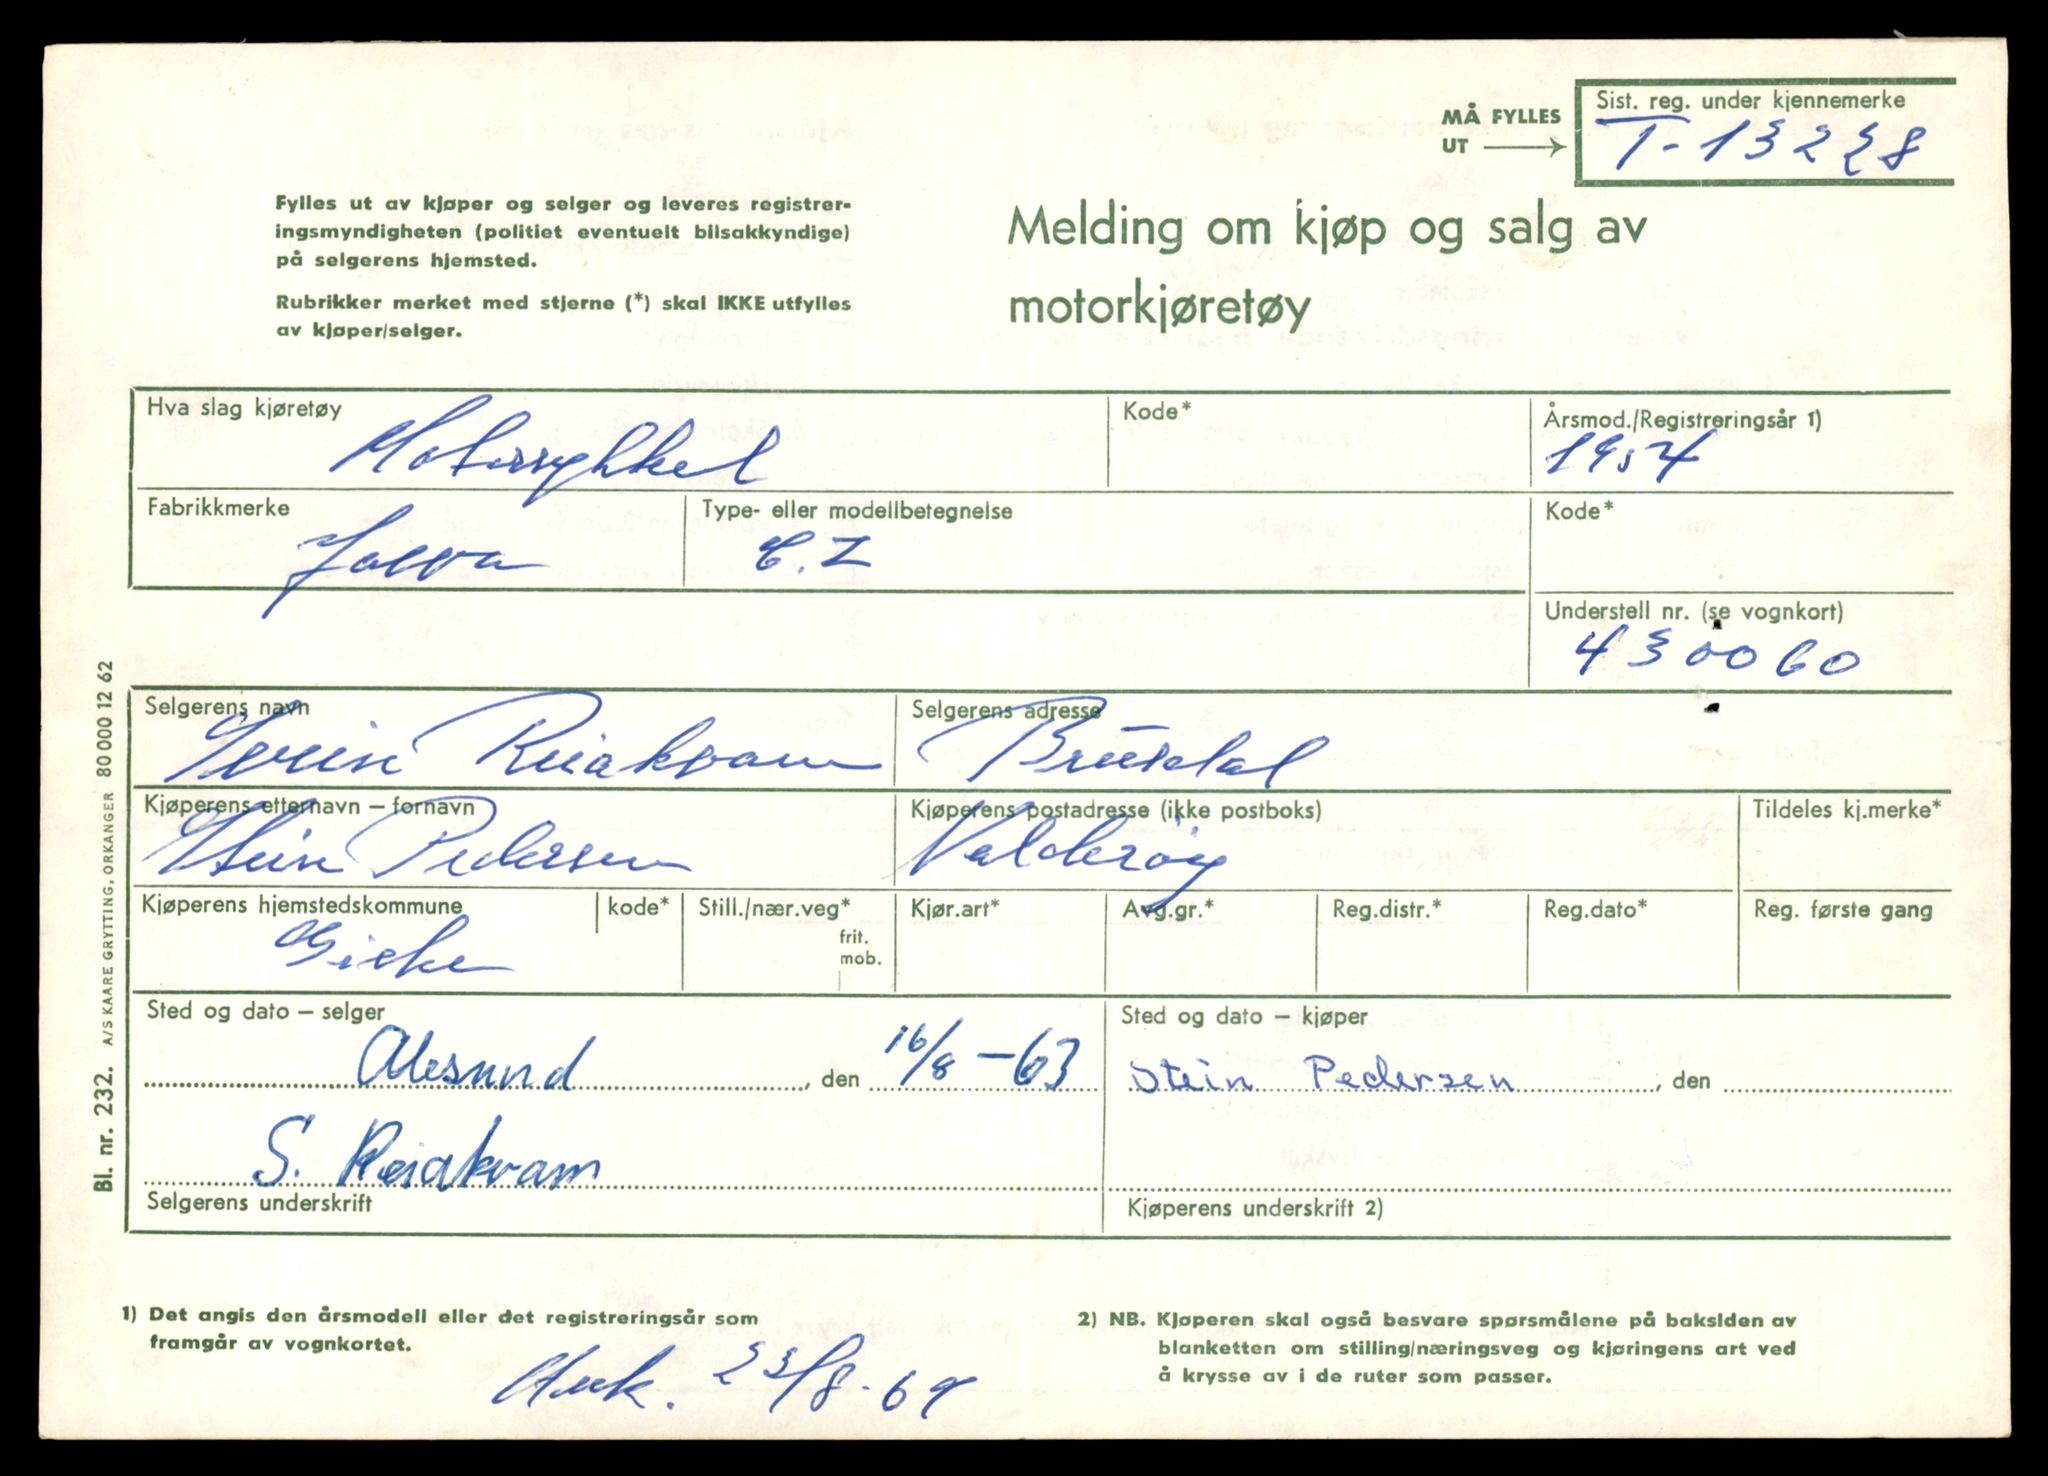 MÅ FYLLES
UT
Sist. reg. under kjennemerke
T-13228
Fylles ut av kjøper og selger og leveres registrer-
ingsmyndigheten (politiet eventuelt bilsakkyndige)
på selgerens hjemsted.
Rubrikker merket med stjerne (*) skal IKKE utfylles
av kjøper/selger.
Melding om kjøp og salg av
motorkjøretøy
Hva slag kjøretøy
Motorsykkel
Kode*
Årsmod./Registreringsår 1)
1954
Fabrikkmerke
Jawa
Type- eller modellbetegnelse
C.Z
Kode*
Understell nr. (se vognkort)
430060
Selgerens navn
Svein Reiakvam
Selgerens adresse
Brusdal
Kjøperens etternavn – fornavn
Stein Pedersen
Kjøperens postadresse (ikke postboks)
Valderøy
Tildeles kj.merke*
Kjøperens hjemstedskommune
Giske
kode*
Still./nær.veg*
frit.
mob.
Kjør.art*
Avg.gr.*
Reg.distr.*
Reg.dato*
Reg. første gang
Sted og dato – selger
Ålesund, den 16/8-63
S. Reiakvam
Selgerens underskrift
Sted og dato – kjøper
Stein Pedersen, den
Kjøperens underskrift 2)
1) Det angis den årsmodell eller det registreringsår som
framgår av vognkortet.
2) NB. Kjøperen skal også besvare spørsmålene på baksiden av
blanketten om stilling/næringsveg og kjøringens art ved
å krysse av i de ruter som passer.
23/8-69
Bl. nr. 232. A/S KAARE GRYTTING, ORKANGER 80 000 12 62